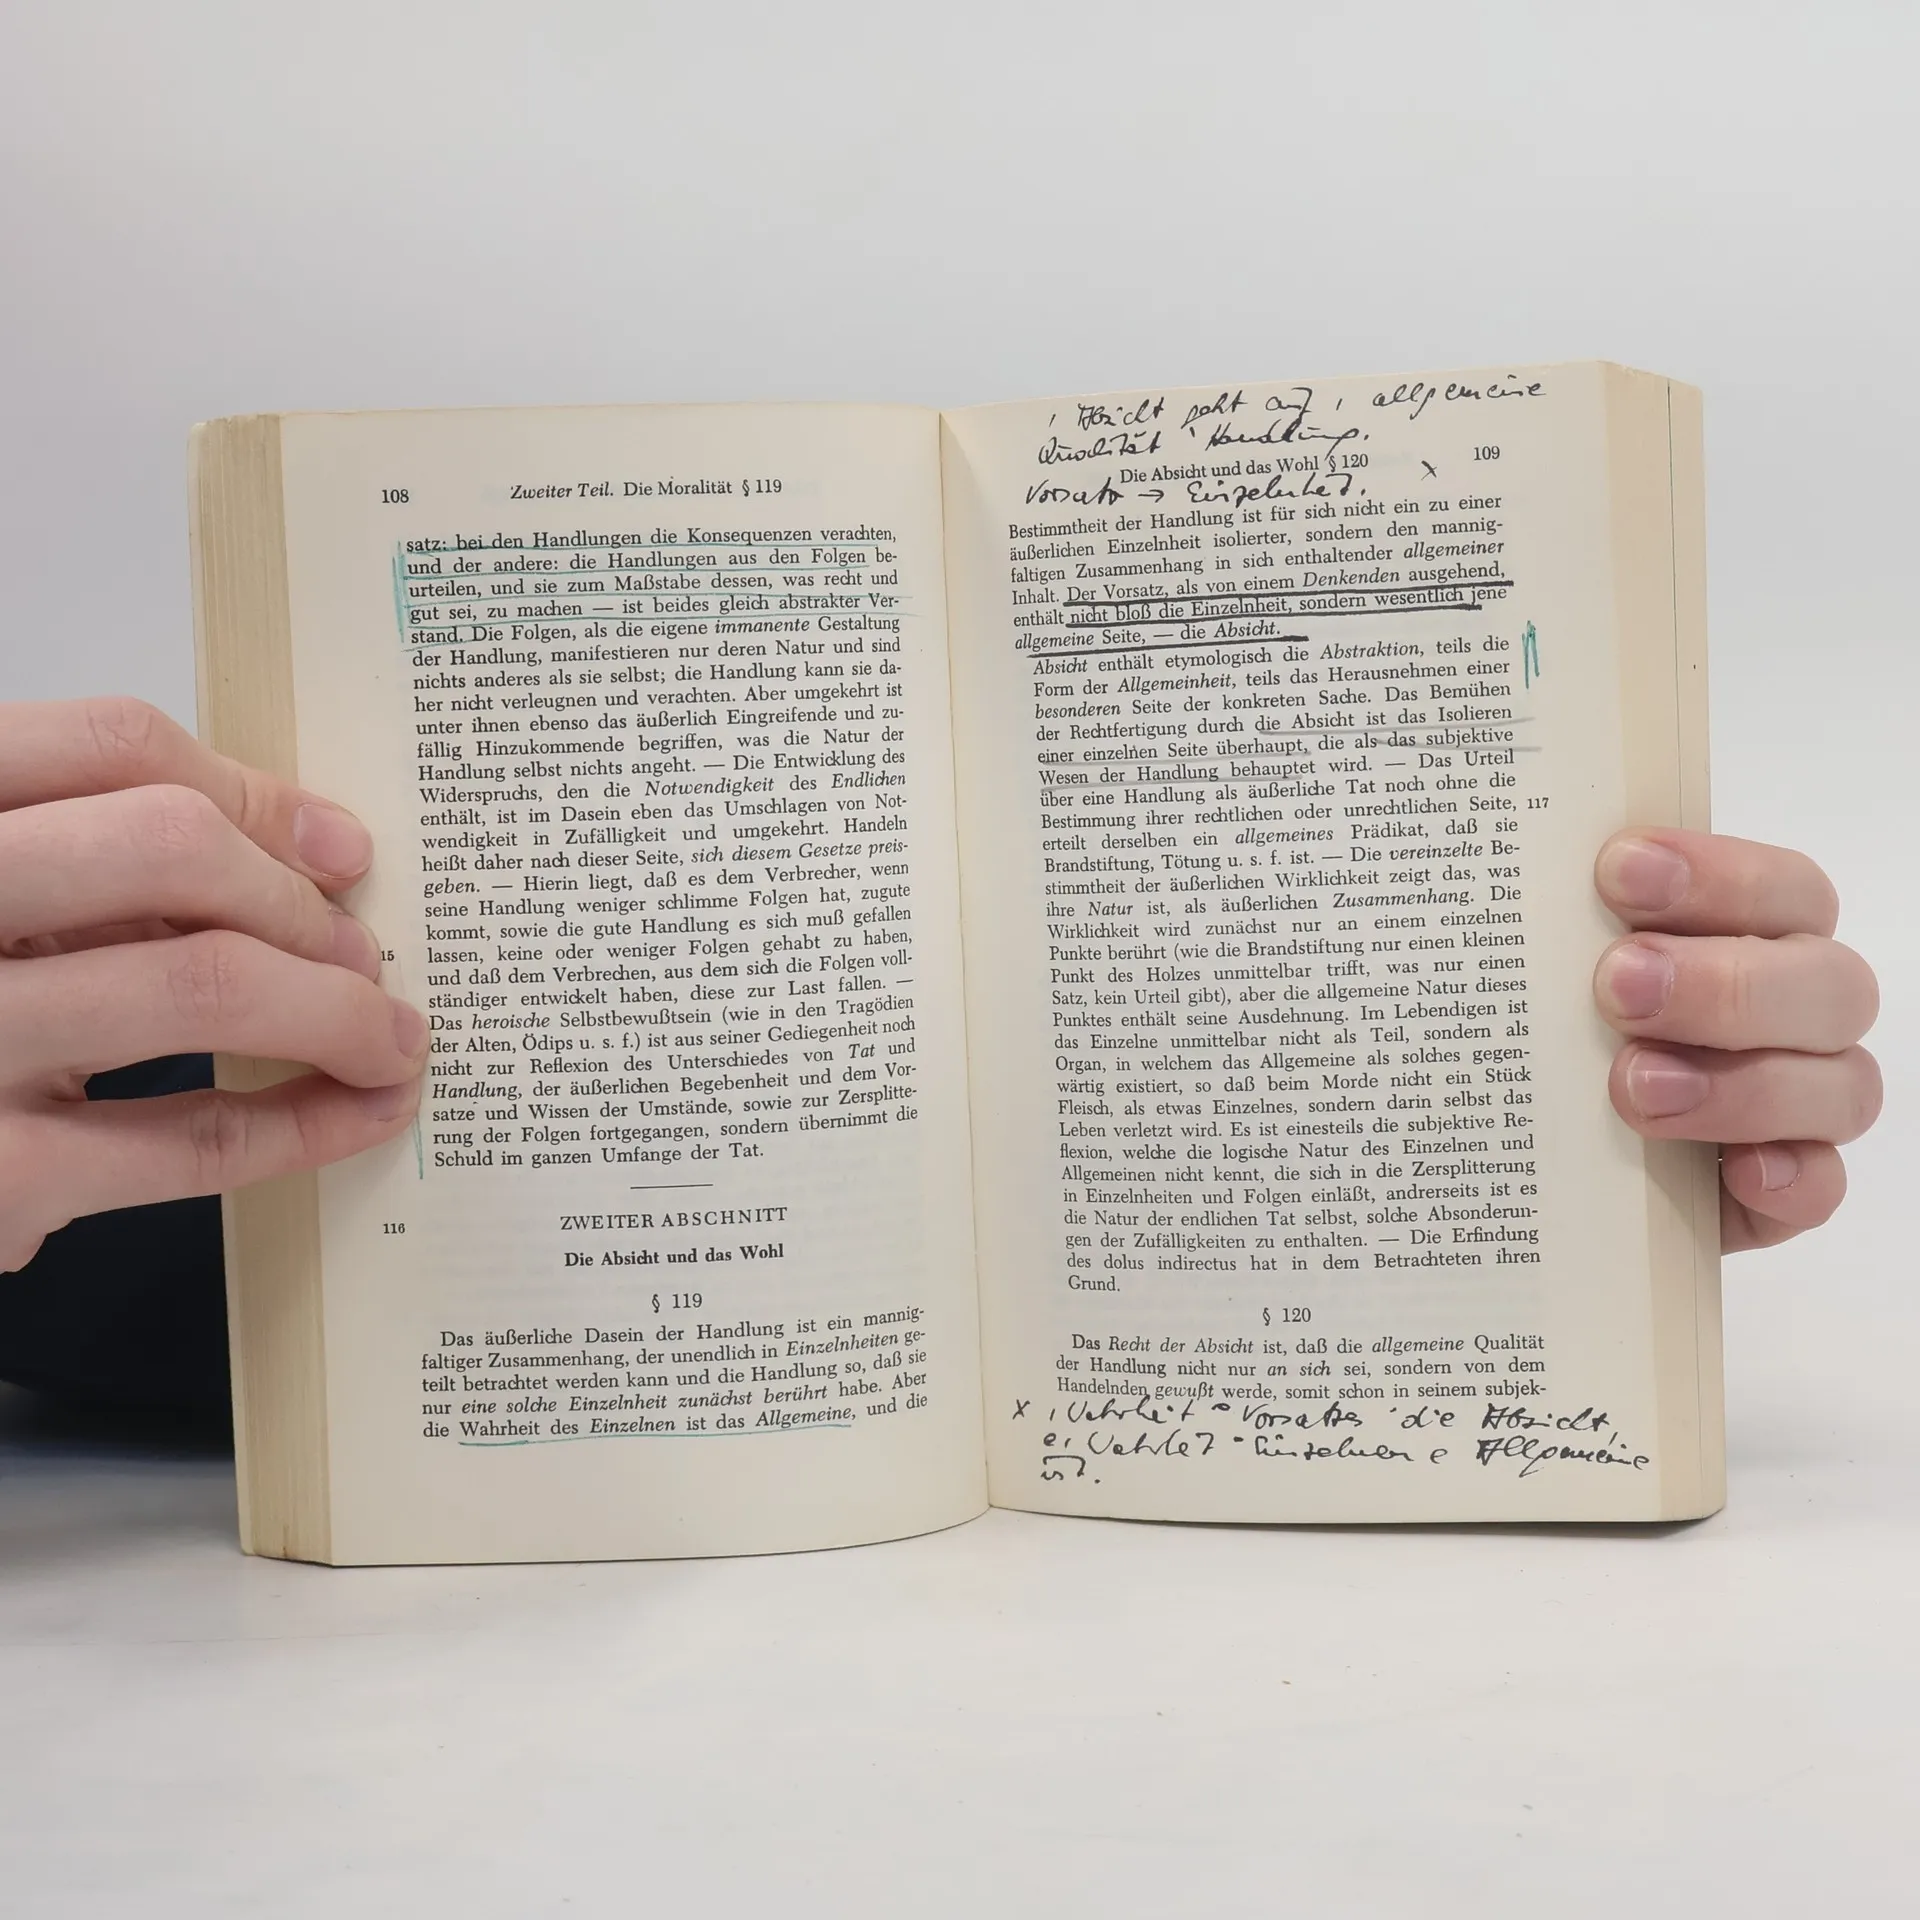 108 Zweiter Teil. Die Moralität § 119
satz: bei den Handlungen die Konsequenzen verachten,
und der andere: die Handlungen aus den Folgen be-
urteilen, und sie zum Maßstabe dessen, was recht und
gut sei, zu machen — ist beides gleich abstrakter Ver-
stand. Die Folgen, als die eigene immanente Gestaltung
der Handlung, manifestieren nur deren Natur und sind
nichts anderes als sie selbst; die Handlung kann sie da-
her nicht verleugnen und verachten. Aber umgekehrt ist
unter ihnen ebenso das äußerlich Eingreifende und zu-
fällig Hinzukommende begriffen, was die Natur der
Handlung selbst nichts angeht. — Die Entwicklung des
Widerspruchs, den die Notwendigkeit des Endlichen
enthält, ist im Dasein eben das Umschlagen von Not-
wendigkeit in Zufälligkeit und umgekehrt. Handeln
heißt daher nach dieser Seite, sich diesem Gesetze preis-
geben. — Hierin liegt, daß es dem Verbrecher, wenn
seine Handlung weniger schlimme Folgen hat, zugute
kommt, sowie die gute Handlung es sich muß gefallen
15 lassen, keine oder weniger Folgen gehabt zu haben,
und daß dem Verbrechen, aus dem sich die Folgen voll-
ständiger entwickelt haben, diese zur Last fallen. —
Das heroische Selbstbewußtsein (wie in den Tragödien
der Alten, Ödips u. s. f.) ist aus seiner Gediegenheit noch
nicht zur Reflexion des Unterschiedes von Tat und
Handlung, der äußerlichen Begebenheit und dem Vor-
satze und Wissen der Umstände, sowie zur Zersplitte-
rung der Folgen fortgegangen, sondern übernimmt die
Schuld im ganzen Umfange der Tat.
116 ZWEITER ABSCHNITT
Die Absicht und das Wohl
§ 119
Das äußerliche Dasein der Handlung ist ein mannig-
faltiger Zusammenhang, der unendlich in Einzelnheiten ge-
teilt betrachtet werden kann und die Handlung so, daß sie
nur eine solche Einzelnheit zunächst berührt habe. Aber
die Wahrheit des Einzelnen ist das Allgemeine, und die
Absicht geht auf allgemeine
Qualität Handlung.
Die Absicht und das Wohl § 120 109
Vorsatz → Einzelnheit.
Bestimmtheit der Handlung ist für sich nicht ein zu einer
äußerlichen Einzelnheit isolierter, sondern den mannig-
faltigen Zusammenhang in sich enthaltender allgemeiner
Inhalt. Der Vorsatz, als von einem Denkenden ausgehend,
enthält nicht bloß die Einzelnheit, sondern wesentlich jene
allgemeine Seite, — die Absicht.
Absicht enthält etymologisch die Abstraktion, teils die
Form der Allgemeinheit, teils das Herausnehmen einer
besonderen Seite der konkreten Sache. Das Bemühen
der Rechtfertigung durch die Absicht ist das Isolieren
einer einzelnen Seite überhaupt, die als das subjektive
Wesen der Handlung behauptet wird. — Das Urteil
über eine Handlung als äußerliche Tat noch ohne die
Bestimmung ihrer rechtlichen oder unrechtlichen Seite, 117
erteilt derselben ein allgemeines Prädikat, daß sie
Brandstiftung, Tötung u. s. f. ist. — Die vereinzelte Be-
stimmtheit der äußerlichen Wirklichkeit zeigt das, was
ihre Natur ist, als äußerlichen Zusammenhang. Die
Wirklichkeit wird zunächst nur an einem einzelnen
Punkte berührt (wie die Brandstiftung nur einen kleinen
Punkt des Holzes unmittelbar trifft, was nur einen
Satz, kein Urteil gibt), aber die allgemeine Natur dieses
Punktes enthält seine Ausdehnung. Im Lebendigen ist
das Einzelne unmittelbar nicht als Teil, sondern als
Organ, in welchem das Allgemeine als solches gegen-
wärtig existiert, so daß beim Morde nicht ein Stück
Fleisch, als etwas Einzelnes, sondern darin selbst das
Leben verletzt wird. Es ist einesteils die subjektive Re-
flexion, welche die logische Natur des Einzelnen und
Allgemeinen nicht kennt, die sich in die Zersplitterung
in Einzelnheiten und Folgen einläßt, andrerseits ist es
die Natur der endlichen Tat selbst, solche Absonderun-
gen der Zufälligkeiten zu enthalten. — Die Erfindung
des dolus indirectus hat in dem Betrachteten ihren
Grund.
§ 120
Das Recht der Absicht ist, daß die allgemeine Qualität
der Handlung nicht nur an sich sei, sondern von dem
Handelnden gewußt werde, somit schon in seinem subjek-
x Wahrheit Vorsatzes die Absicht,
Einzelnen e Allgemeine
ist.